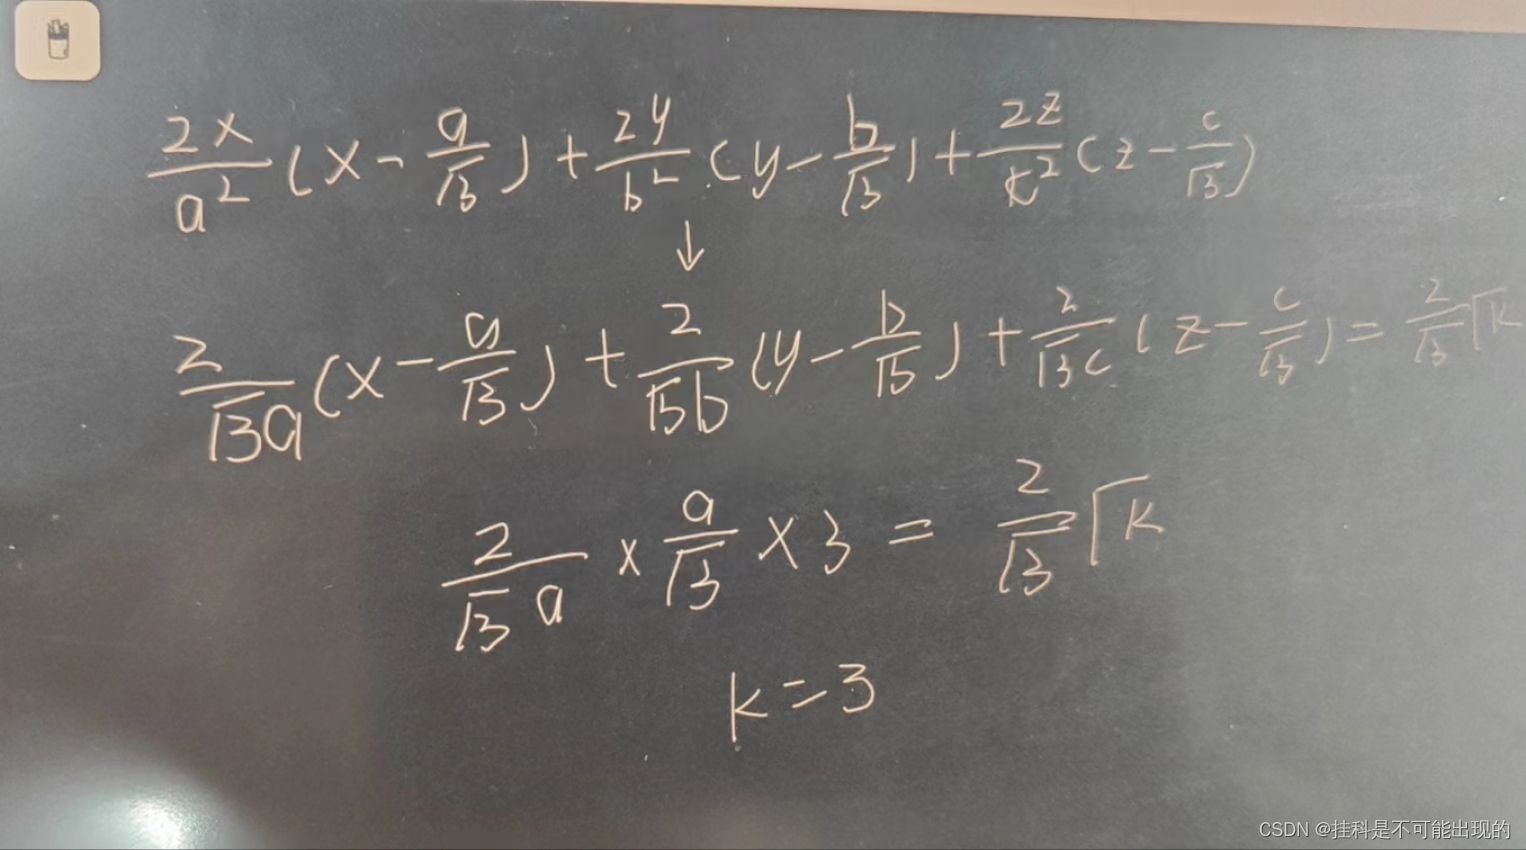 2x/a² (x - a/√3) + 2y/b² (y - b/√3) + 2z/c² (z - c/√3)
↓
2/√3a (x - a/√3) + 2/√3b (y - b/√3) + 2/√3c (z - c/√3) = 2/√3 √k
2/√3a × a/√3 × 3 = 2/√3 √k
k = 3
CSDN @挂科是不可能出现的